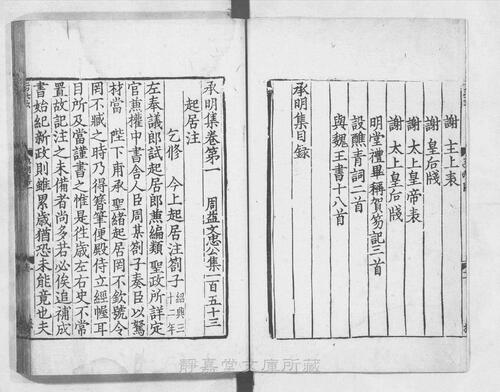 謝 主上表
謝 皇后牋
謝 太上皇帝表
謝 太上皇后牋
明堂禮畢稱賀笏記三首
設醮青詞二首
與魏王書十八首
承明集目錄
承明集卷第一 周益文忠公集一百五十三
起居注
乞修 今上起居注劄子 紹興三十二年
左奉議郎試起居郎兼編類 聖政所詳定
官兼權中書舍人臣周某劄子奏臣以駑
材當 陛下甫承 聖緒起居罔不欽號令
罔不臧之時乃得簪筆便殿侍立經帷耳
目所及當謹書之惟是徃歲左右史不常
置故記注之未備者尚多若必俟追補成
書始紀新政則雖累歲猶恐未能竟也夫
靜嘉堂文庫所藏